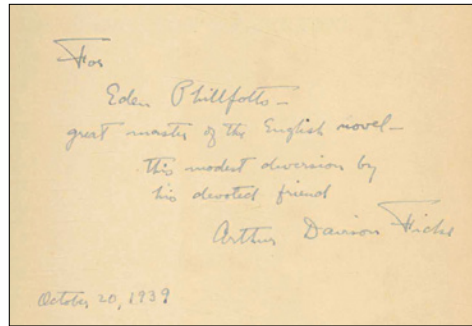 For
Eden Phillpotts –
great master of the English novel –
this modest diversion by
his devoted friend
Arthur Davison Ficke
October 20, 1939